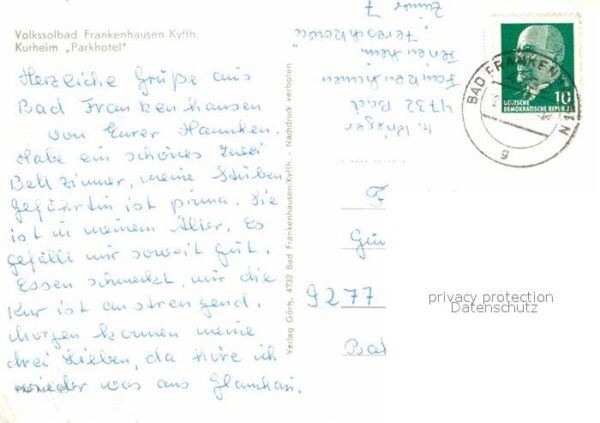 Volkssolbad Frankenhausen Kyffh.
Kurheim „Parkhotel"
Herzliche Grüße aus
Bad Frankenhausen
von Eurer
Habe ein schönes Zwei
Bett Zimmer, meine Stuben
gefährtin ist prima. Sie
ist in meinem Alter. Es
gefällt mir soweit gut.
Essen schmeckt mir die
Kur ist anstrengend.
Morgen kommen meine
drei Lieben, da höre ich
wieder was aus Glauchau.
Verlag Görtz, 4732 Bad Frankenhausen/Kyffh. - Nachdruck verboten
4732 Bad
Frankenhausen
Zimmer 7
BAD FRANKENH
g
DEUTSCHE
DEMOKRATISCHE REPUBLIK
10
F
Gün
9277
Bal
privacy protection
Datenschutz